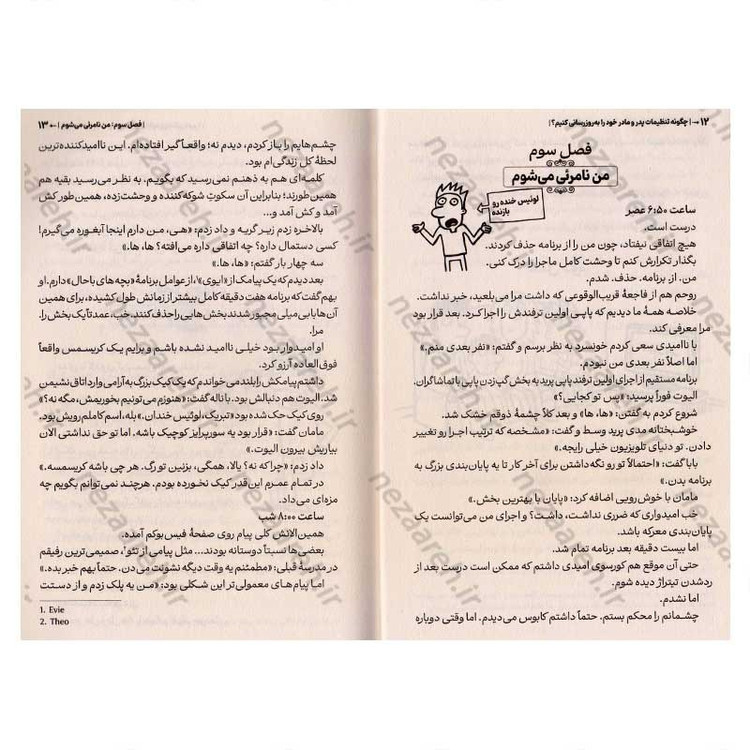 ۱۲ →| چگونه تنظیمات پدر و مادر خود را به‌روزرسانی کنیم؟ |
فصل سوم
من نامرئی می‌شوم
لوئیس خنده‌رو
بازنده
ساعت ۶:۵۰ عصر
درست است.
هیچ اتفاقی نیفتاد، چون من را از برنامه حذف کردند.
بگذار تکرارش کنم تا وحشت کامل ماجرا را درک کنی.
من. از. برنامه. حذف. شدم.
روحم هم از فاجعهٔ قریب‌الوقوعی که داشت مرا می‌بلعید، خبر نداشت.
خلاصه همهٔ ما دیدیم که پاپی اولین ترفندش را اجرا کرد. بعد قرار بود
مرا معرفی کند.
با ناامیدی سعی کردم خونسرد به نظر برسم و گفتم: «نفر بعدی منم.»
اما اصلاً نفر بعدی من نبودم.
برنامه مستقیم از اجرای اولین ترفند پاپی پرید به بخش گپ زدن پاپی با تماشاگران.
الیوت فوراً پرسید: «پس تو کجایی؟»
شروع کردم به گفتن: «ها، ها» و بعد کلاً چشمهٔ ذوقم خشک شد.
خوشبختانه مدی پرید وسط و گفت: «مشخصه که ترتیب اجرا رو تغییر
دادن. تو دنیای تلویزیون خیلی رایجه.»
بابا گفت: «احتمالاً تو رو نگه داشتن برای آخر کار تا یه پایان‌بندی بزرگ به
برنامه بدن.»
مامان با خوش‌رویی اضافه کرد: «پایان با بهترین بخش.»
خب امیدواری که ضرری نداشت، داشت؟ و اجرای من می‌توانست یک
پایان‌بندی معرکه باشد.
اما بیست دقیقه بعد برنامه تمام شد.
حتی آن موقع هم کورسوی امیدی داشتم که ممکن است درست بعد از
رد شدن تیتراژ دیده شوم.
اما نشدم.
چشمانم را محکم بستم. حتماً داشتم کابوس می‌دیدم. اما وقتی دوباره
| فصل سوم: من نامرئی می‌شوم |← ۱۳
چشم‌هایم را باز کردم، دیدم نه؛ واقعاً گیر افتاده‌ام. این ناامیدکننده‌ترین
لحظهٔ کل زندگی‌ام بود.
کلمه‌ای هم به ذهنم نمی‌رسید که بگویم. به نظر می‌رسید بقیه هم
همین طورند؛ بنابراین آن سکوت شوکه‌کننده و وحشت‌زده، همین طور کش
آمد و کش آمد و...
بالاخره زدم زیر گریه و داد زدم: «هی، من دارم اینجا آبغوره می‌گیرم!
کسی دستمال داره؟ چه اتفاقی داره می‌افته؟ ها، ها.»
سه چهار بار گفتم: «ها، ها.»
بعد دیدم که یک پیامک از «ایوی»۱، از عوامل برنامهٔ «بچه‌های باحال» دارم. او
بهم گفت که برنامه هفت دقیقه کامل بیشتر از زمانش طول کشیده، برای همین
آن‌ها با بی‌میلی مجبور شدند بخش‌هایی را حذف کنند. خب، عمد‌تاً یک بخش را.
مرا.
او امیدوار بود خیلی ناامید نشده باشم و برایم یک کریسمس واقعاً
فوق‌العاده آرزو کرد.
داشتم پیامکش را بلند می‌خواندم که یک کیک بزرگ به آرامی وارد اتاق نشیمن
شد. الیوت هم دنبالش بود. با ناله گفت: «هنوزم می‌تونیم بخوریمش، مگه نه؟»
روی کیک حک شده بود «تبریک، لوئیس خندان.» بله، اسم کاملم رویش بود.
مامان گفت: «قرار بود یه سورپرایز کوچیک باشه. اما تو حق نداشتی الان
بیاریش بیرون الیوت.»
داد زدم: «چرا که نه؟ یالا، همگی، بزنین تو رگ. هر چی باشه کریسمسه.»
در تمام عمرم این‌قدر کیک نخورده بودم. هرچند نمی‌توانم بگویم چه
مزه‌ای می‌داد.
ساعت ۸:۰۰ شب
همین الانش کلی پیام روی صفحهٔ فیس‌بوکم آمده.
بعضی‌ها نسبتاً دوستانه بودند... مثل پیامی از تئو۲، صمیمی‌ترین رفیقم
در مدرسهٔ قبلی: «مطمئنم یه وقت دیگه نشونت می‌دن. حتماً بهم خبر بده.»
اما پیام‌های معمولی‌تر این شکلی بود: «من یه پلک زدم و از دستت
1. Evie
2. Theo
nezaareh.ir